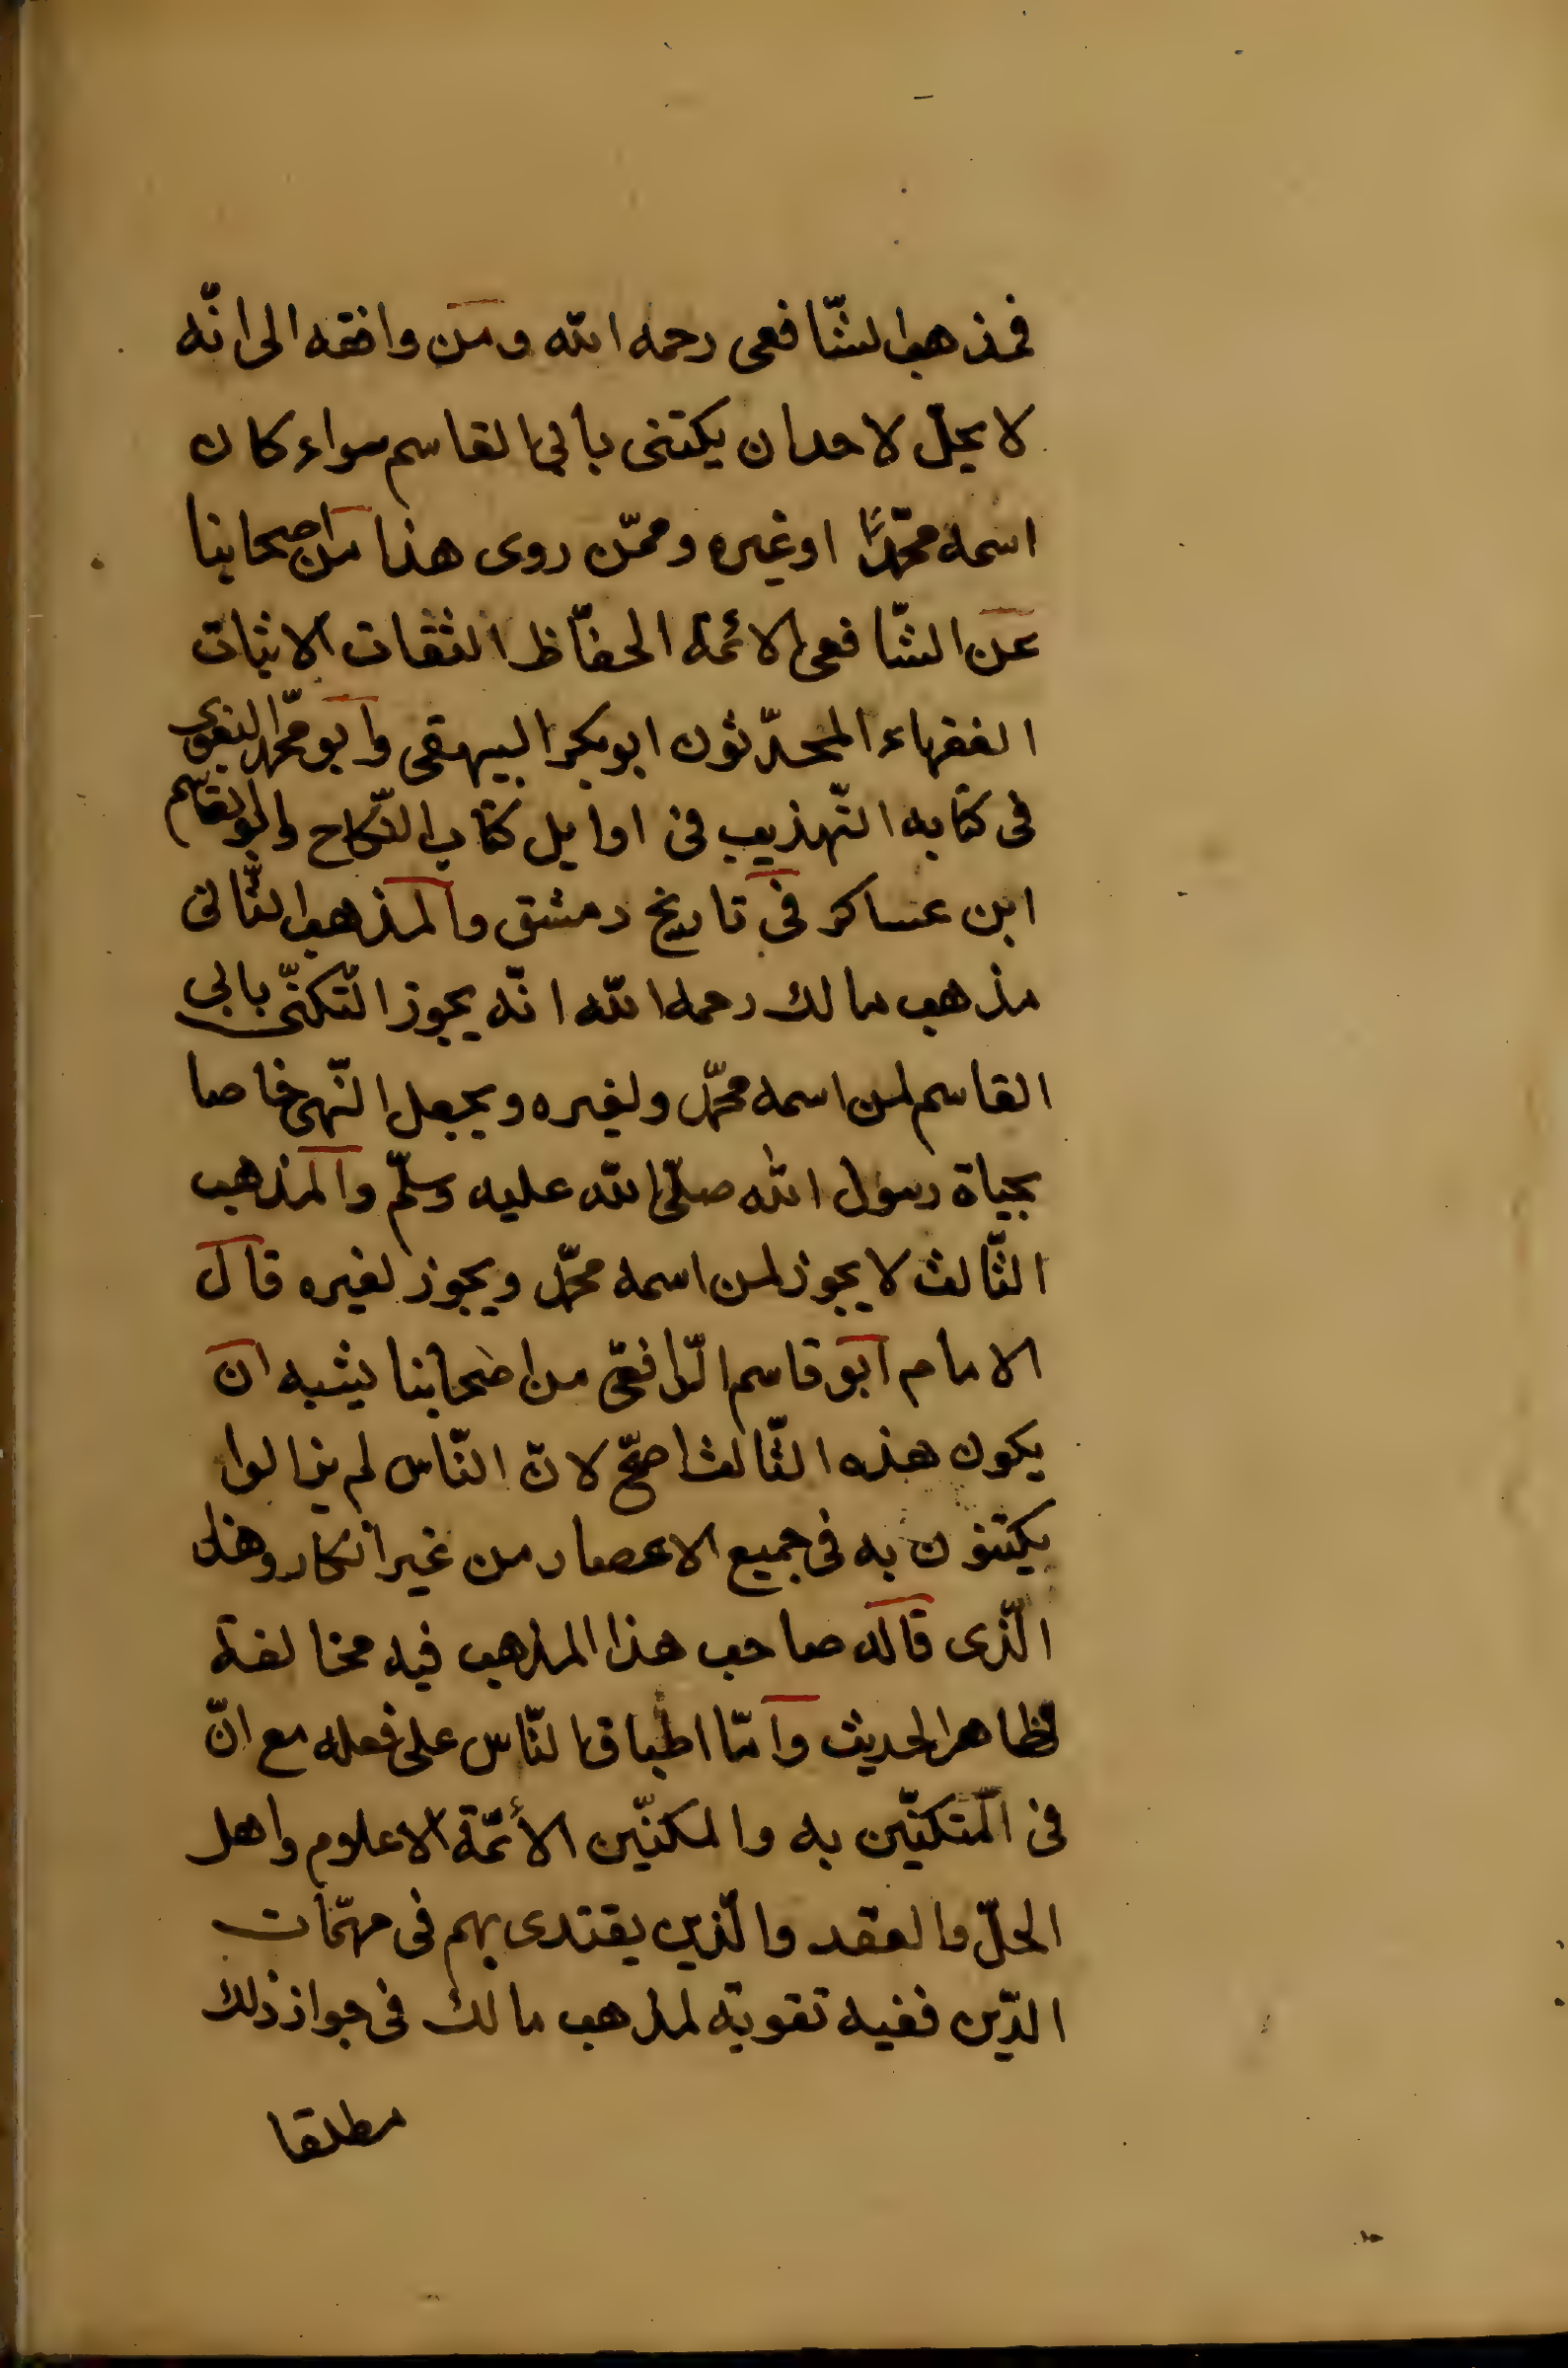 فمذهب الشّافعى رحمه الله ومن وافقه الى انّه
لا يحلّ لاحدان يكتنى بأبى القاسم سواء كان
اسمه محمّدًا اوغيره وممّن روى هذا من اصحابنا
عن الشّافعى الائمة الحفّاظ الثقات الاثبات
الفقهاء المحدّثون ابوبكر البيهقى وابو محمّد البغوى
فى كتابه التّهذيب فى اوايل كتاب النّكاح وابو القاسم
ابن عساكر فى تاريخ دمشق والمذهب الثّانى
مذهب مالك رحمه الله انّه يجوز التّكنّى بابى
القاسم لمن اسمه محمّد ولغيره ويجعل النّهى خاصا
بحياة رسول الله صلّى الله عليه وسلّم والمذهب
الثّالث لا يجوز لمن اسمه محمّد ويجوز لغيره قال
الامام ابو قاسم الرّافعى من اصحابنا يشبه ان
يكون هذه الثّالث اصحّ لانّ النّاس لم يزالوا
يكتنون به فى جميع الاعصار من غير انكار وهذا
الّذى قاله صاحب هذا المذهب فيه مخالفة
لظاهر الحديث وامّا اطباق النّاس على فعله مع انّ
فى المتكنّين به والمكنّين الأئمّة الاعلام واهل
الحلّ والعقد والّذين يقتدى بهم فى مهمّات
الدّين ففيه تقوية لمذهب مالك فى جواز ذلك
مطلقا